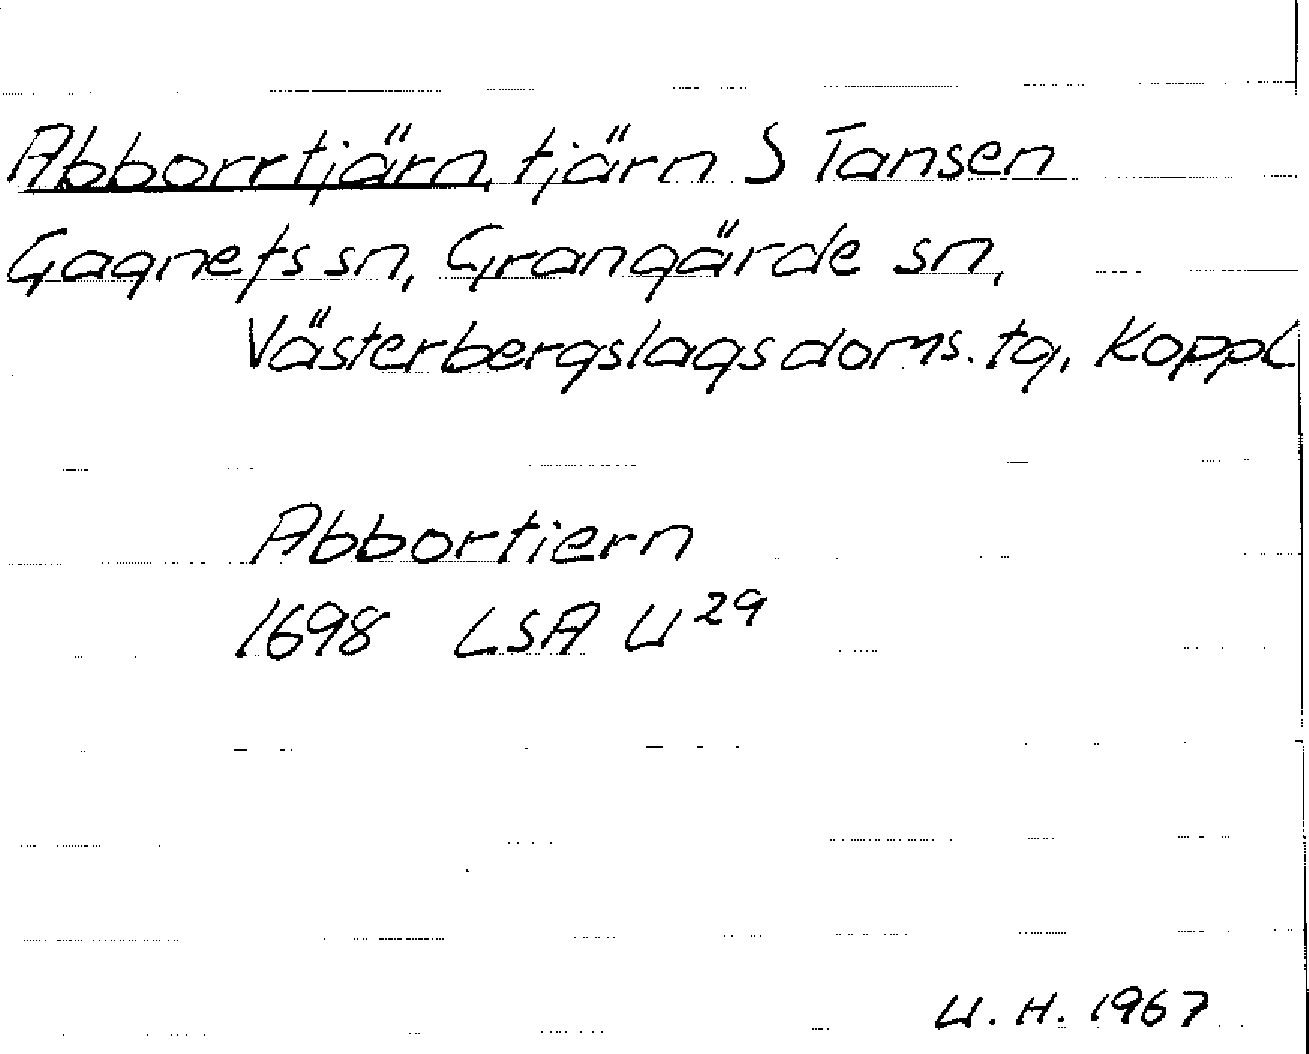 Abborrtjärn, tjärn S Tansen
Gagnefs sn, Grangärde sn,
Västerbergslags doms. tg, KoppL
Abbortiern
1698 LSA U 29
U. H. 1967